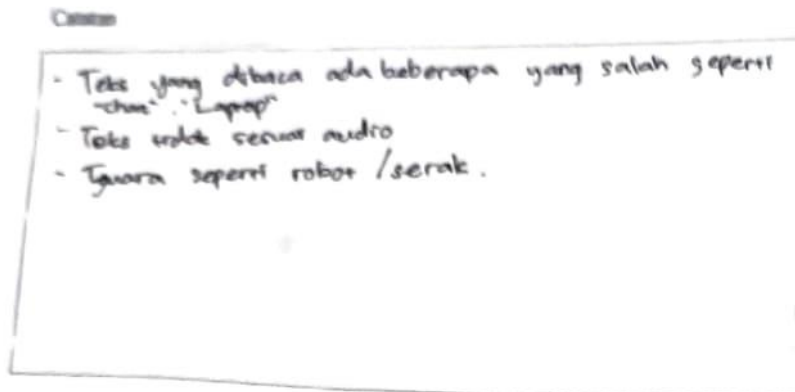 Catatan
- Teks yang dibaca ada beberapa yang salah seperti
"Laptop"
- Teks tidak sesuai audio
- Suara seperti robot / serak.